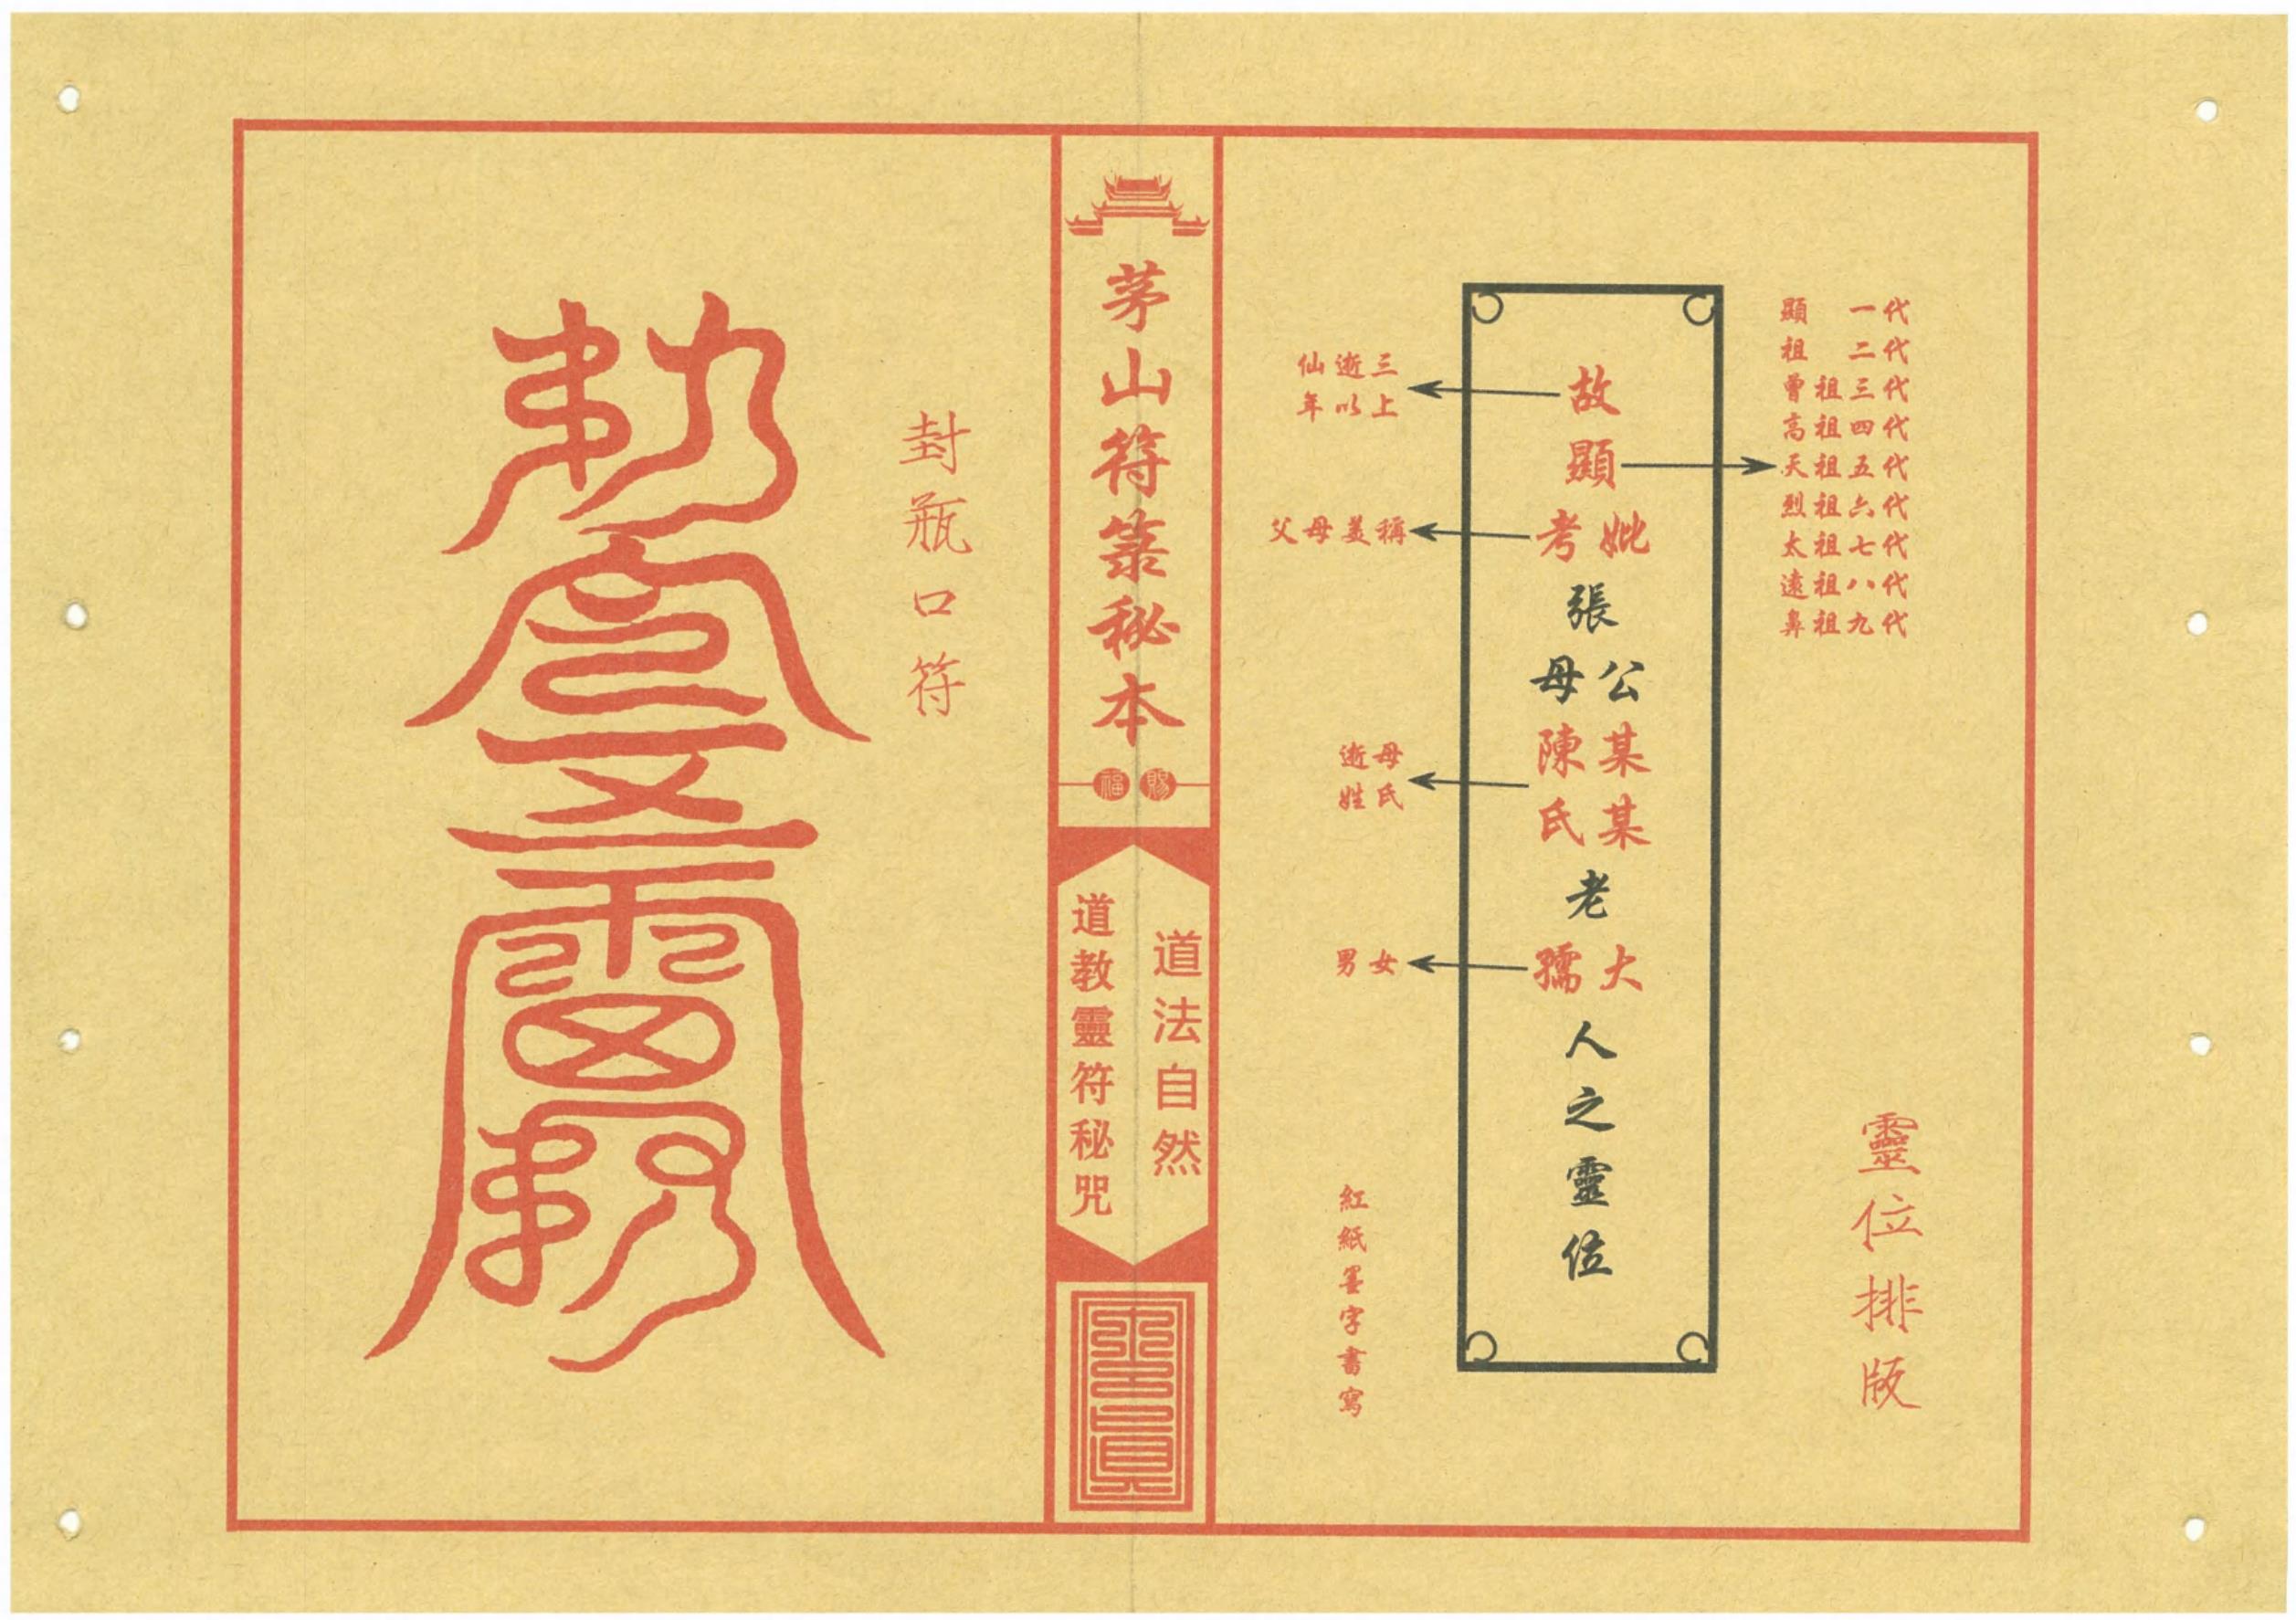 靈位排版
顯 一代
祖 二代
曾祖三代
高祖四代
天祖五代
烈祖六代
太祖七代
遠祖八代
鼻祖九代
故
顯
考妣
張
母公
陳某
氏某
老
孺大
人
之
靈
位
仙逝三
年以上
父母美稱
逝母
姓氏
男女
紅紙墨字書寫
茅山符箓秘本
賜
福
道法自然
道教靈符秘咒
封瓶口符